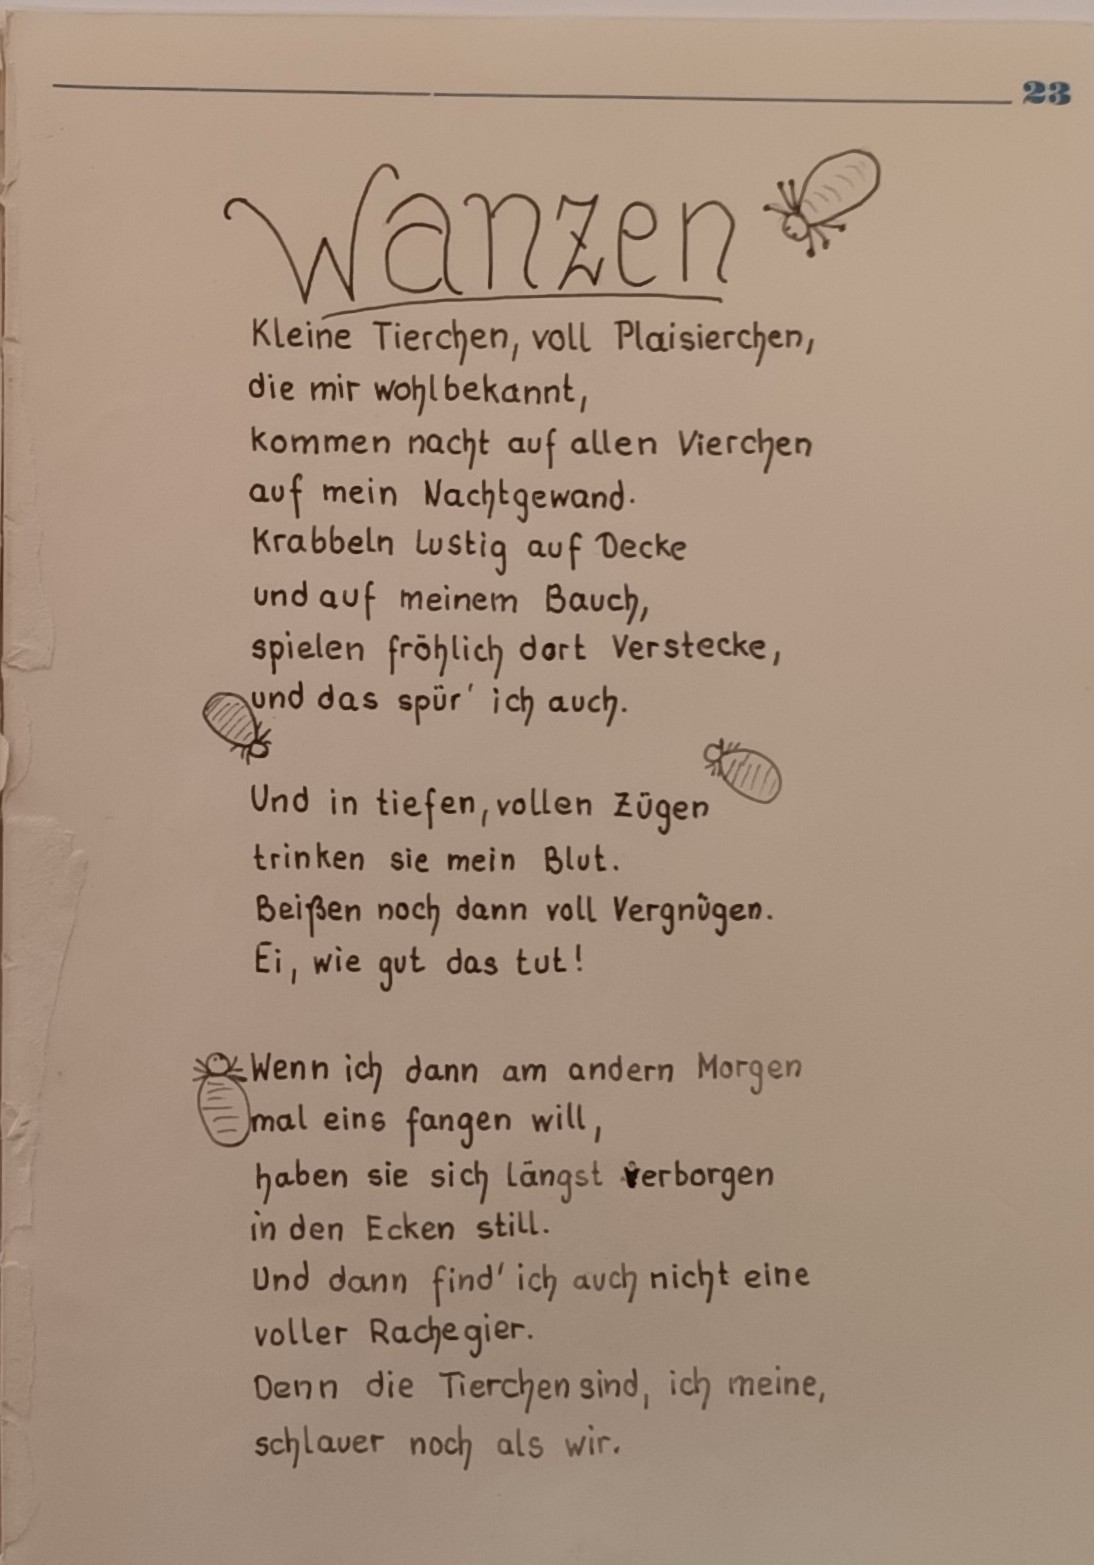 23
Wanzen
Kleine Tierchen, voll Plaisierchen,
die mir wohlbekannt,
kommen nacht auf allen Vierchen
auf mein Nachtgewand.
Krabbeln lustig auf Decke
und auf meinem Bauch,
spielen fröhlich dort Verstecke,
und das spür' ich auch.
Und in tiefen, vollen Zügen
trinken sie mein Blut.
Beißen noch dann voll Vergnügen.
Ei, wie gut das tut!
Wenn ich dann am andern Morgen
mal eins fangen will,
haben sie sich längst verborgen
in den Ecken still.
Und dann find' ich auch nicht eine
voller Rachegier.
Denn die Tierchen sind, ich meine,
schlauer noch als wir.